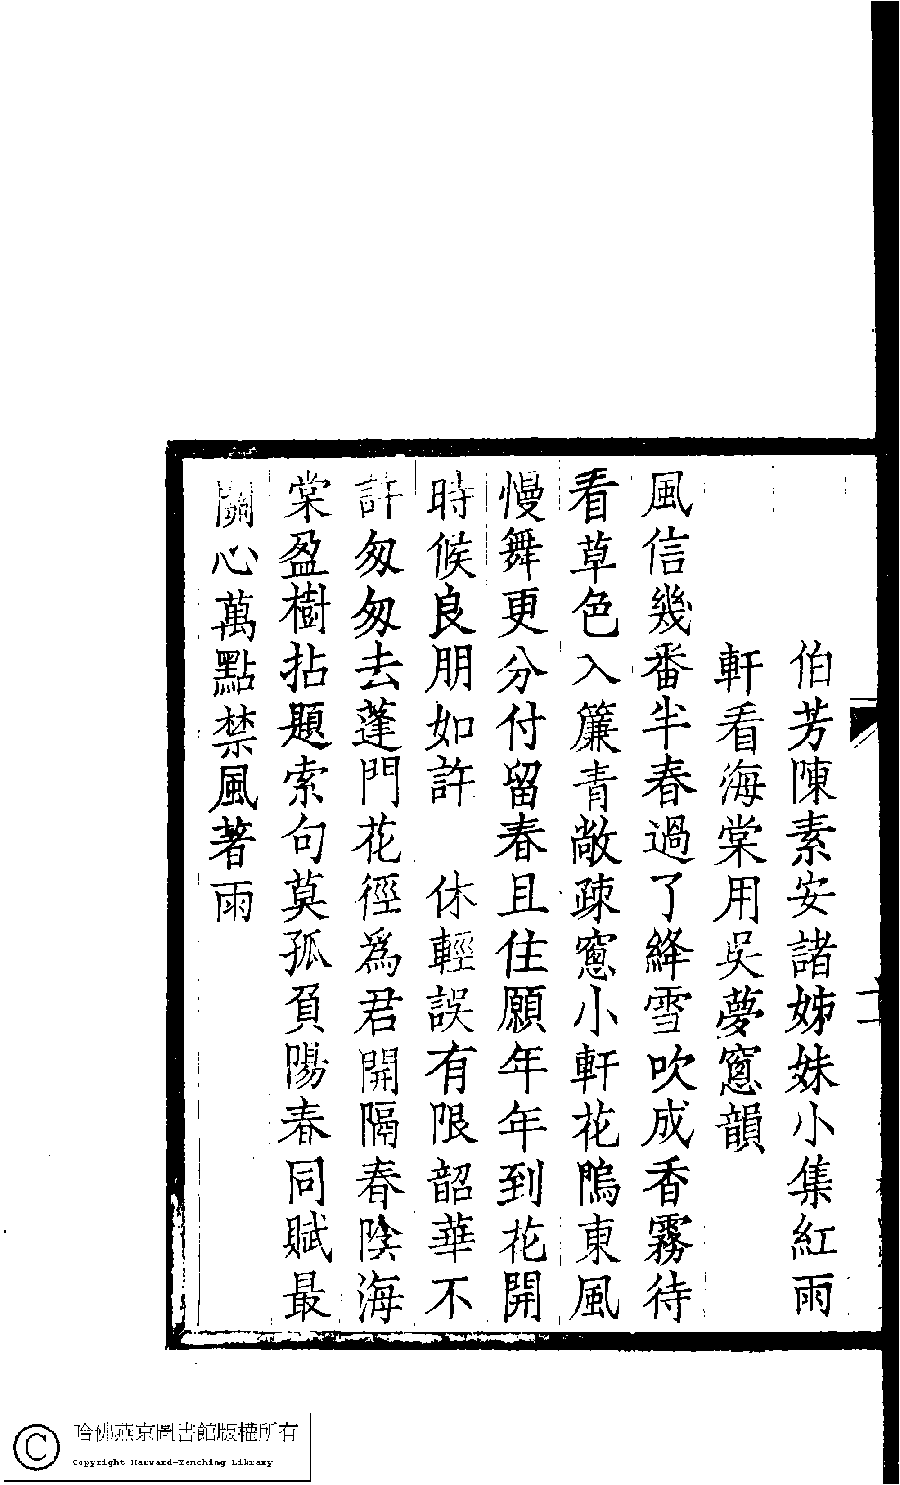 伯芳陳素安諸姊妹小集紅雨
軒看海棠用吳夢窻韻
風信幾番半春過了絳雪吹成香霧待
看草色入簾青敞疎窻小軒花塢東風
慢舞更分付留春且住願年年到花開
時候良朋如許　休輕誤有限韶華不
許匆匆去蓬門花徑爲君開隔春陰海
棠盈樹拈題索句莫孤負陽春同賦最
關心萬點禁風著雨
哈佛燕京圖書館版權所有
Copyright Harvard-Yenching Library